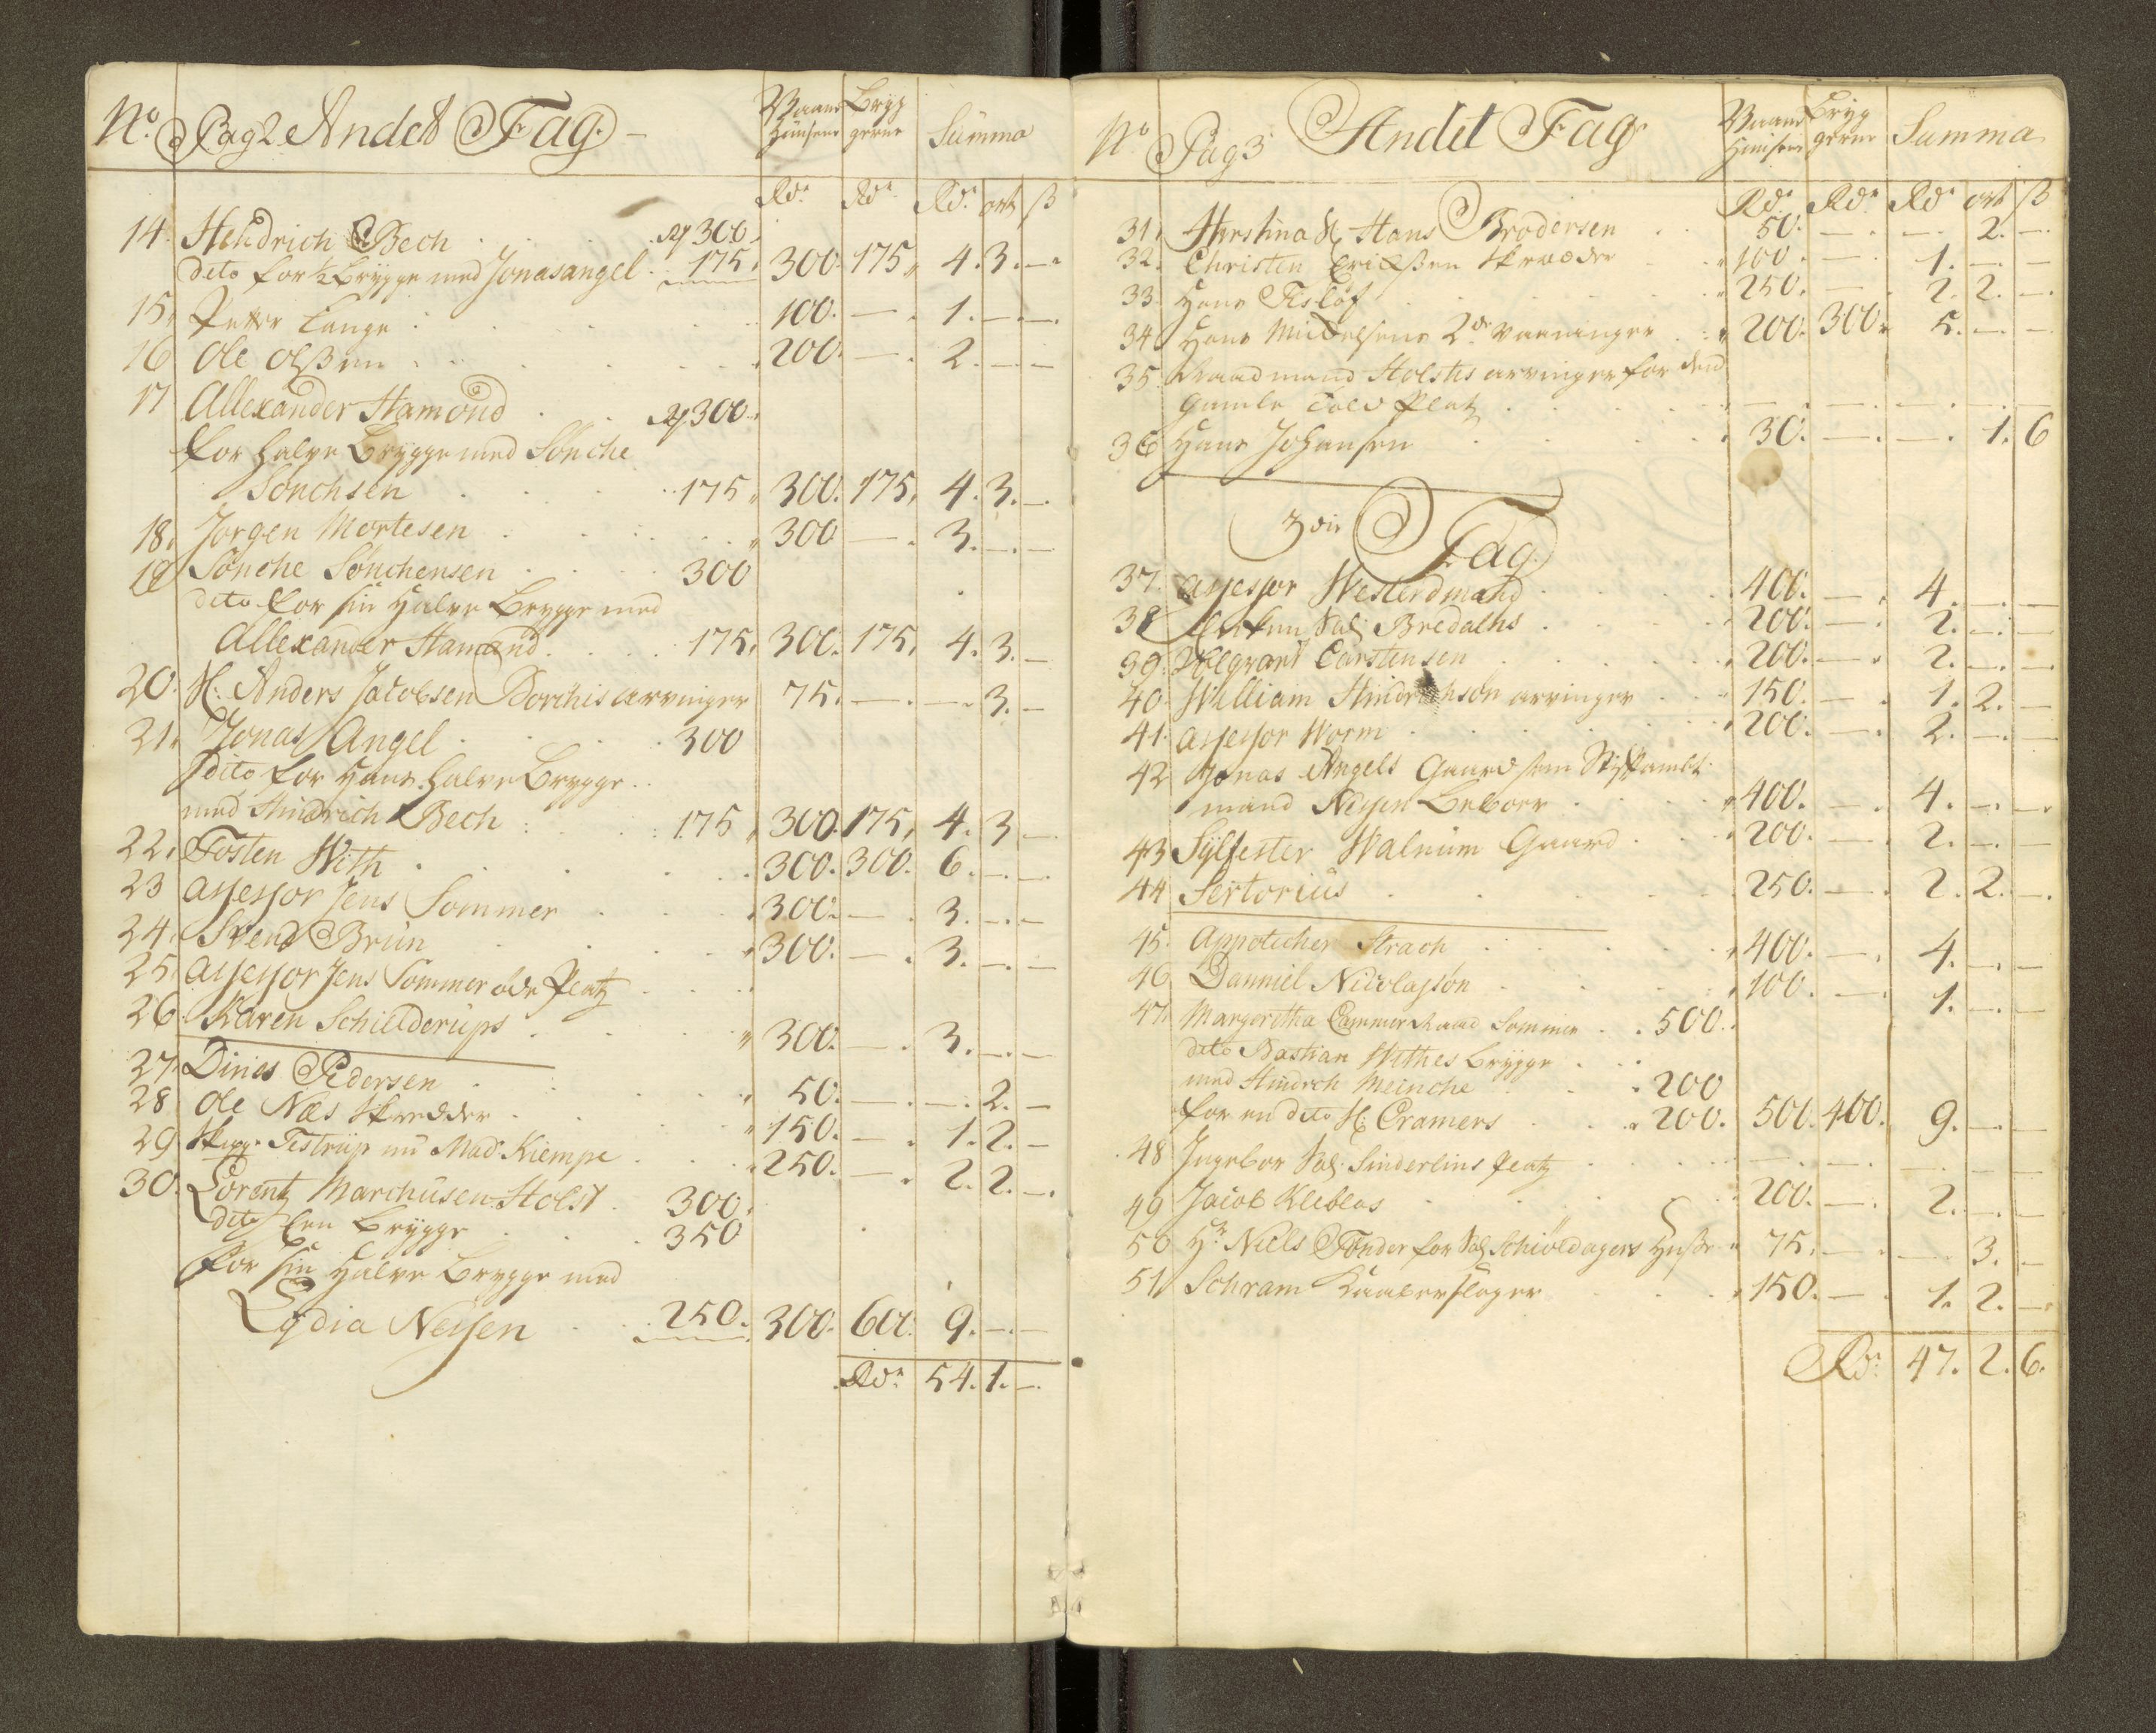 No. Pag 2 Andet Fag. Vaane Huusene Bryg gerne Summa
Rdr. Rdr. Rdr. ort ß
14. Hendrich Bech . . . 300.
dito for ½ Brygge med Jonasangel . 175. 300. 175. 4. 3. —
15. Petter Lange . . . 100. — . 1. — . —
16 Ole Olßen . . . 200. — . 2. — . —
17 Allexander Hamond . . . 300.
for halve Brygge med Sönche
Sönchsen . . . 175. 300. 175. 4. 3. —
18. Jorgen Mortesen . . . 300 — . 3. — . —
19 Sönche Sönchensen . . . 300
dito for sin Halve Brygge med
Allexander Hamond . . . 175. 300. 175. 4. 3. —
20. H: Anders Jacobsen Borchis arvinger 75. — . — . 3. —
21. Jonas Angel . . . 300
dito for Hans halve Brygge . .
med Hindrich Bech : . . 175 300. 175. 4. 3 —
22. Tosten With . . . 300. 300. 6. — . —
23 assessor Jens Sommer . . . 300. — . 3. — . —
24. Svend Brün . . . 300. — . 3. — . —
25. assessor Jens Sommer öde Platz . . .
26. Karen Schielderups . . . 300. — . 3. — . —
27. Dines Pedersen . . . 50. — . — . 2. —
28. Ole Næs Skredder . . . 150. — . 1. 2. —
29 Skipp. Testrup nu Mad: Kiempe . . . 250. — . 2. 2. —
30. Lorentz Marchusen Holst . 300.
dito Een Brygge . . . 350
for sin Halve Brygge med
Lydia Neisen . . . 250. 300. 600. 9. — . —
Rdr. 54. 1. —
No Pag 3 Andet Fag Vaane Huusene Bryg gerne Summa
Rdr. Rdr. Rdr ort ß
31. Hr Hans Brodersen . . 50. — . — . 2. —
32. Christen Erichßen Skrædder . 100. — . 1. — . —
33. Hans Fisløf . . . 250. — . 2. 2. —
34 Hans Mickelsens 2de vaaninger . . 200. 300. 5. — . —
35. Raadmand Holstis arvinger for den
Gamle Told Platz . . . — . — . — . — . —
36 Hans Johansen . . . 30. — . — . 1. 6
3die Fag.
37. assessor Westerdmand . . . 400. — . 4. — . —
38 Sal: Bredalhs . . . 200. — . 2. — . —
39. Carstensen . . . 200. — . 2. — . —
40. William Hindrichson arvinger . . 150. — . 1. 2. —
41. assessor Worm . . . 200. — . 2. — . —
42 Jonas Angels Gaard som Stiftambt
mand Neysen Beboer . . . 400. — . 4. — . —
43 Sylfester Walnum Gaard . . . 200. — . 2. — . —
44 Sertorius . . . 250. — . 2. 2. —
45. Appotecher Strach . . . 400. — . 4. — . —
46 Danniel Nicolayson . . . 100. — . 1. — . —
47. Margeretha Cammer Raad Sommer . . 500.
dito Bastian Withes Brygge . .
med Hindrch Meinche . . . 200
for en dito H: Cramers . . . 200. 500. 400. 9. — . —
48 Ingebor Sal: Sinderlins Platz . . . — . — . — . — . —
49 Jacob Kleblas . . . 200. — . 2. — . —
50 Hr Niels Tönder for Sal: Schiöldagers Huße 75. — . — . 3. —
51 Schram Kaaberslager . . . 150. — . 1. 2. —
Rdr. 47. 2. 6.